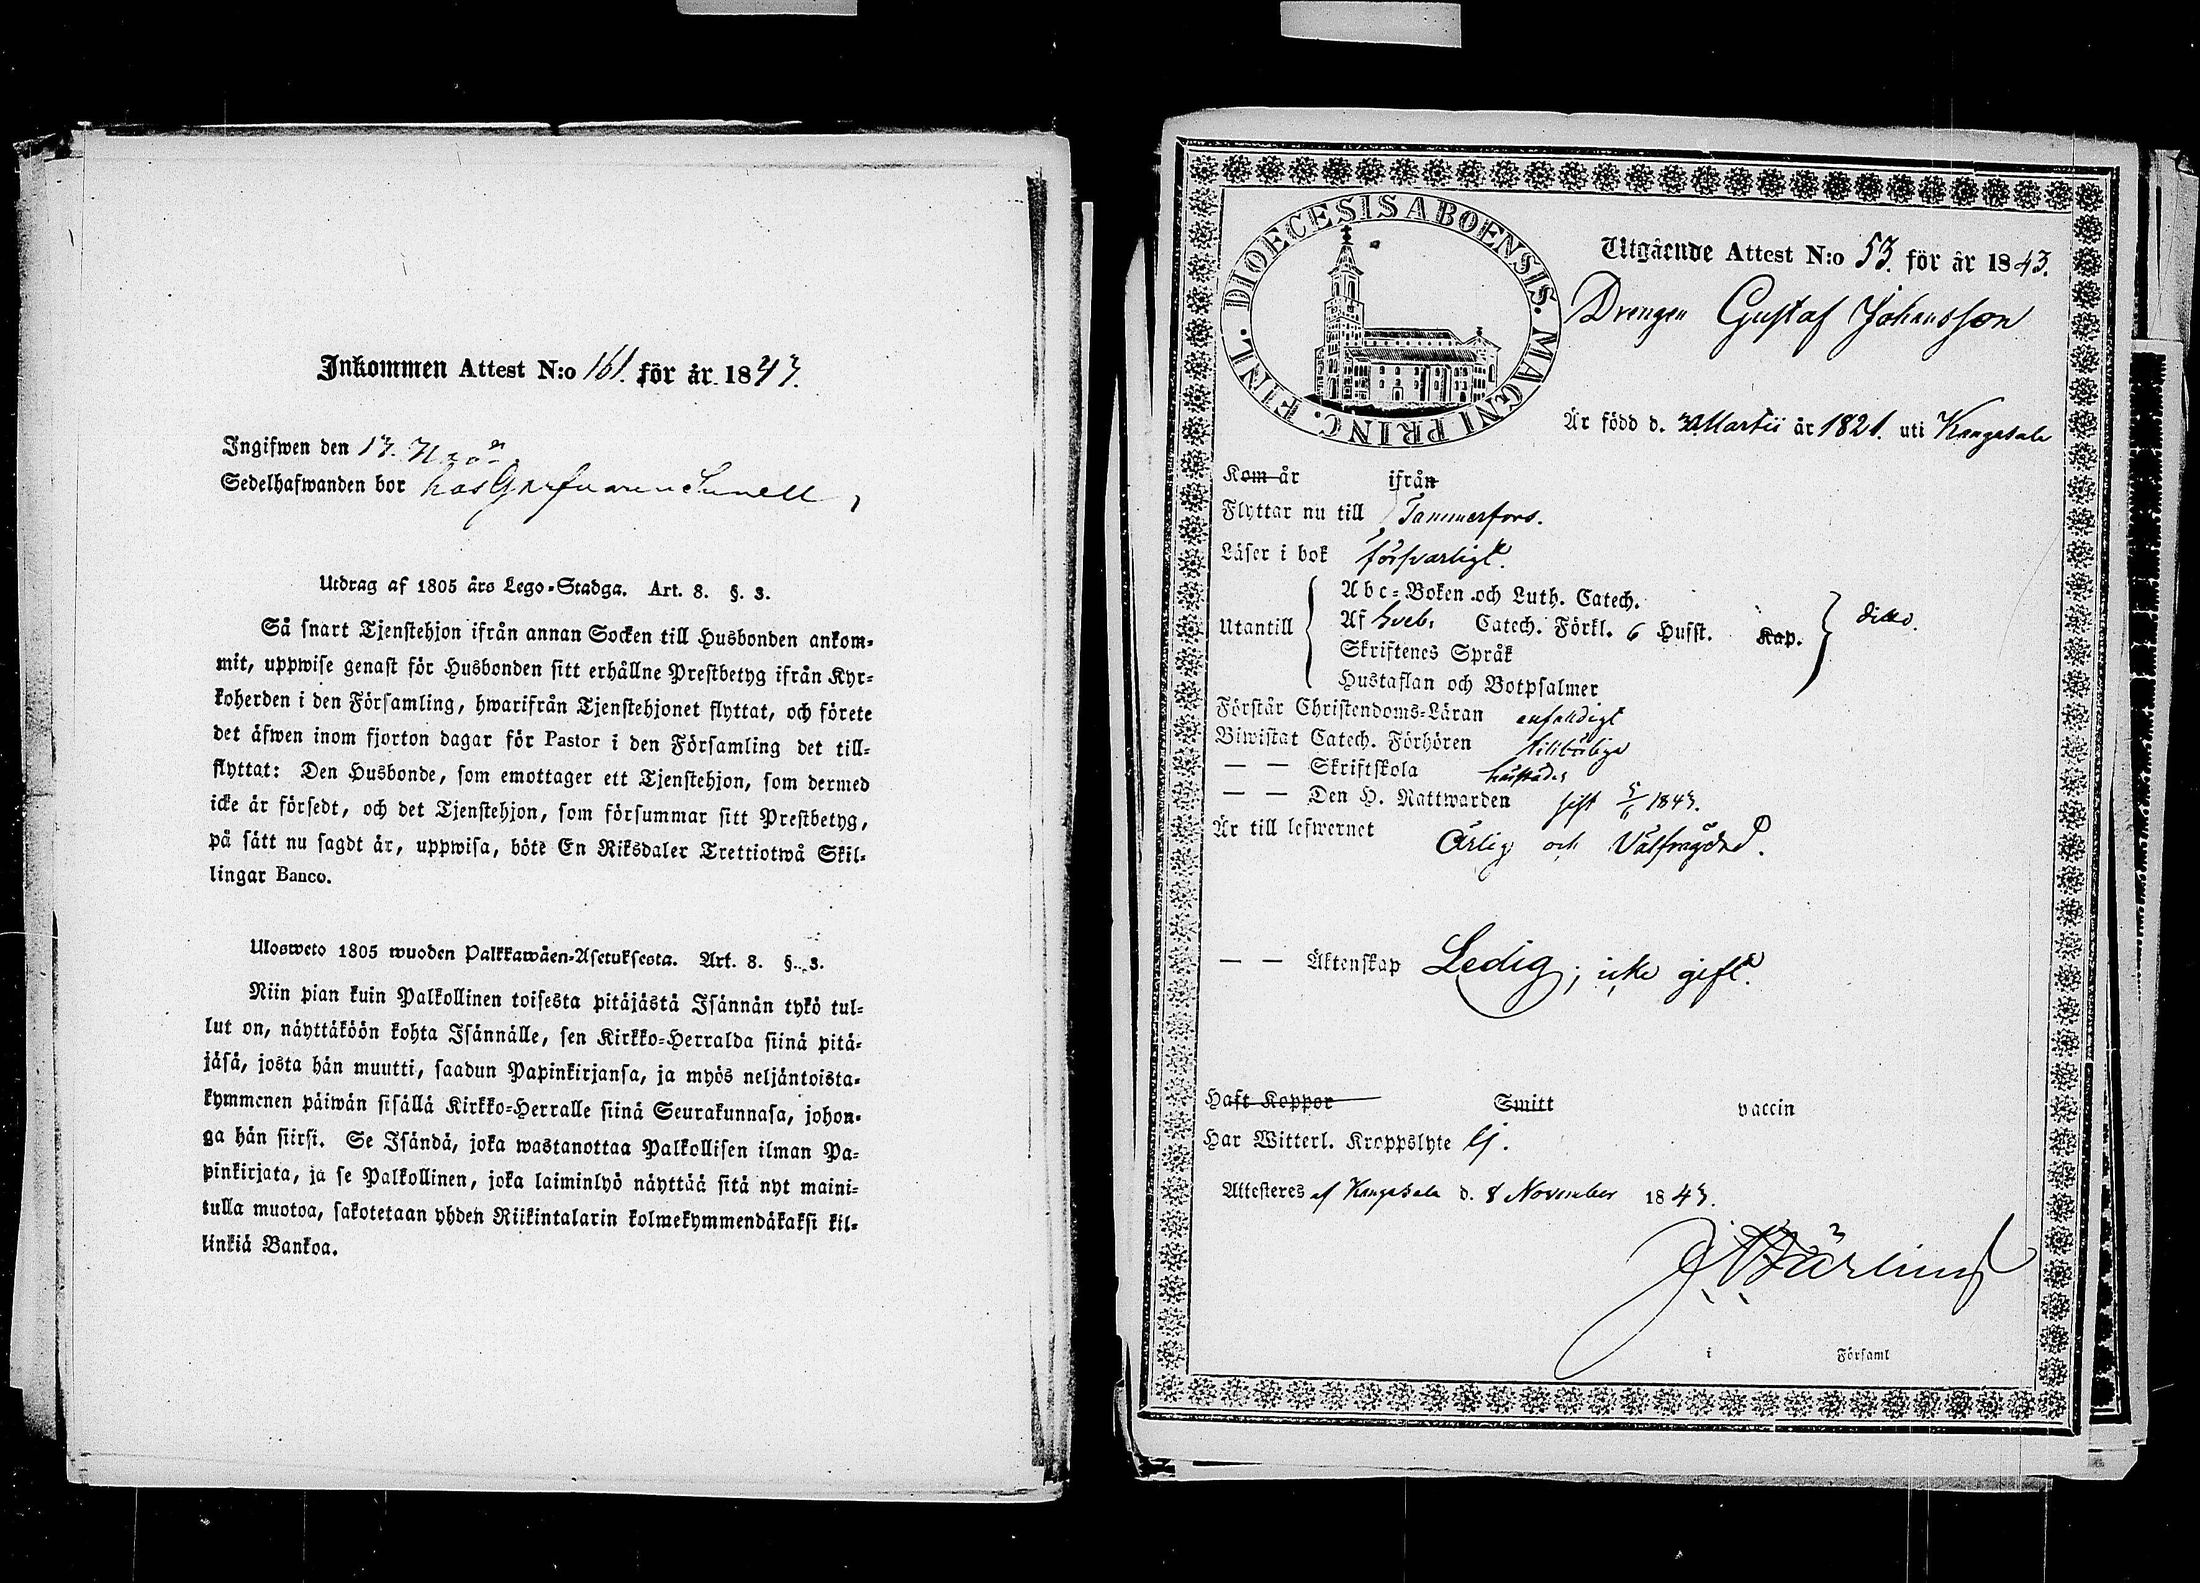 Inkommen Attest N:o 161. för år 1843.
Ingifwen den 13. Nov.
Sedelhafwanden bor hos Garfwaren Sunell
Utdrag af 1805 års Lego-Stadga. Art. 8. §. 3.
Så snart Tjenstehjon ifrån annan Socken till Husbonden ankom-
mit, uppwise genast för Husbonden sitt erhållne Prestbetyg ifrån Kyr-
koherden i den Församling, hwarifrån Tjenstehjonet flyttat, och förete
det äfwen inom fjorton dagar för Pastor i den Församling det till-
flyttat: Den Husbonde, som emottager ett Tjenstehjon, som dermed
icke är försedt, och det Tjenstehjon, som försummar sitt Prestbetyg,
på sätt nu sagdt är, uppwisa, böte En Riksdaler Trettiotwå Skil-
lingar Banco.
Ulosweto 1805 wuoden Palkkawäen-Asetuksesta. Art. 8. §. 3.
Niin pian kuin Palkollinen toisesta pitäjästä Isännän tykö tul-
lut on, näyttäköön kohta Isännälle, sen Kirkko-Herralda siinä pitä-
jäsä, josta hän muutti, saadun Papinkirjansa, ja myös neljäntoista-
kymmenen päiwän sisällä Kirkko-Herralle siinä Seurakunnasa, johon-
ga hän siirsi. Se Isändä, joka wastanottaa Palkollisen ilman Pa-
pinkirjata, ja se Palkollinen, joka laiminlyö näyttää sitä nyt maini-
tulla muotoa, sakotetaan yhden Riikintalarin kolmekymmendäkaksi kil-
linkiä Bankoa.
FINL. DIOECESIS ABOENSIS. MAGNI PRINC.
Utgående Attest N:o 53. för år 1843.
Drengen Gustaf Johansson
Är född d. 30 Martii år 1821. uti Kangasala
Kom år ifrån
Flyttar nu till Tammerfors.
Läser i bok försvarligt.
Utantill
Abc-Boken och Luth. Catech.
Af Sveb. Catech. Förkl. 6 Husst. Kap. ditto.
Skriftenes Språk
Hustaflan och Botpsalmer
Förstår Christendoms-Läran enfaldigt
Biwistat Catech. Förhören tillbörligt
— — Skriftskola härstädes
— — Den H. Nattwarden sist 5/11 1843.
Är till lefwernet Ärlig och Välfrägdad.
— — Äktenskap Ledig; icke gift.
Haft Koppor Smitt vaccin
Har Witterl. Kroppslyte Ej.
Attesteres af Kangasala d. 8 November 1843.
i Församl